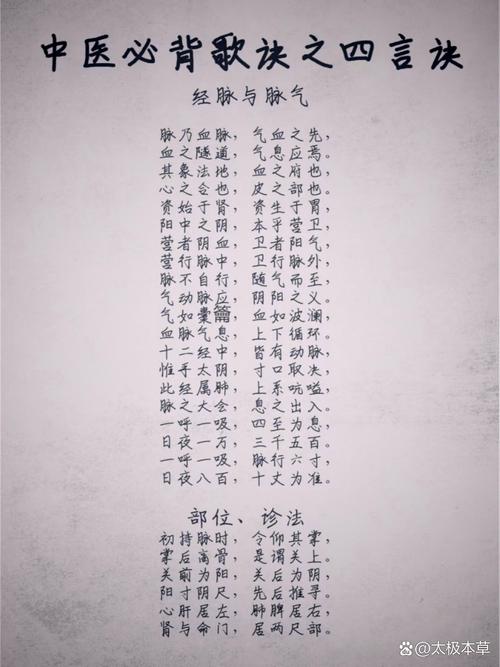 中医必背歌诀之四言诀
经脉与脉气
脉乃血脉，气血之先，
血之隧道，气息应焉。
其象法地，血之府也，
心之合也，皮之部也。
资始于肾，资生于胃，
阳中之阴，本乎营卫，
营者阴血，卫者阳气，
营行脉中，卫行脉外，
脉不自行，随气而至，
气动脉应，阴阳之义。
气如橐籥，血如波澜，
血脉气息，上下循环。
十二经中，皆有动脉，
惟手太阴，寸口取决，
此经属肺，上系吭嗌，
脉之大会，息之出入。
一呼一吸，四至为息，
日夜一万，三千五百。
一呼一吸，脉行六寸，
日夜八百，十丈为准。
部位、诊法
初持脉时，令仰其掌，
掌后高骨，是谓关上。
关前为阳，关后为阴，
阳寸阴尺，先后推寻。
心肝居左，肺脾居右，
肾与命门，居两尺部。
@太极本草